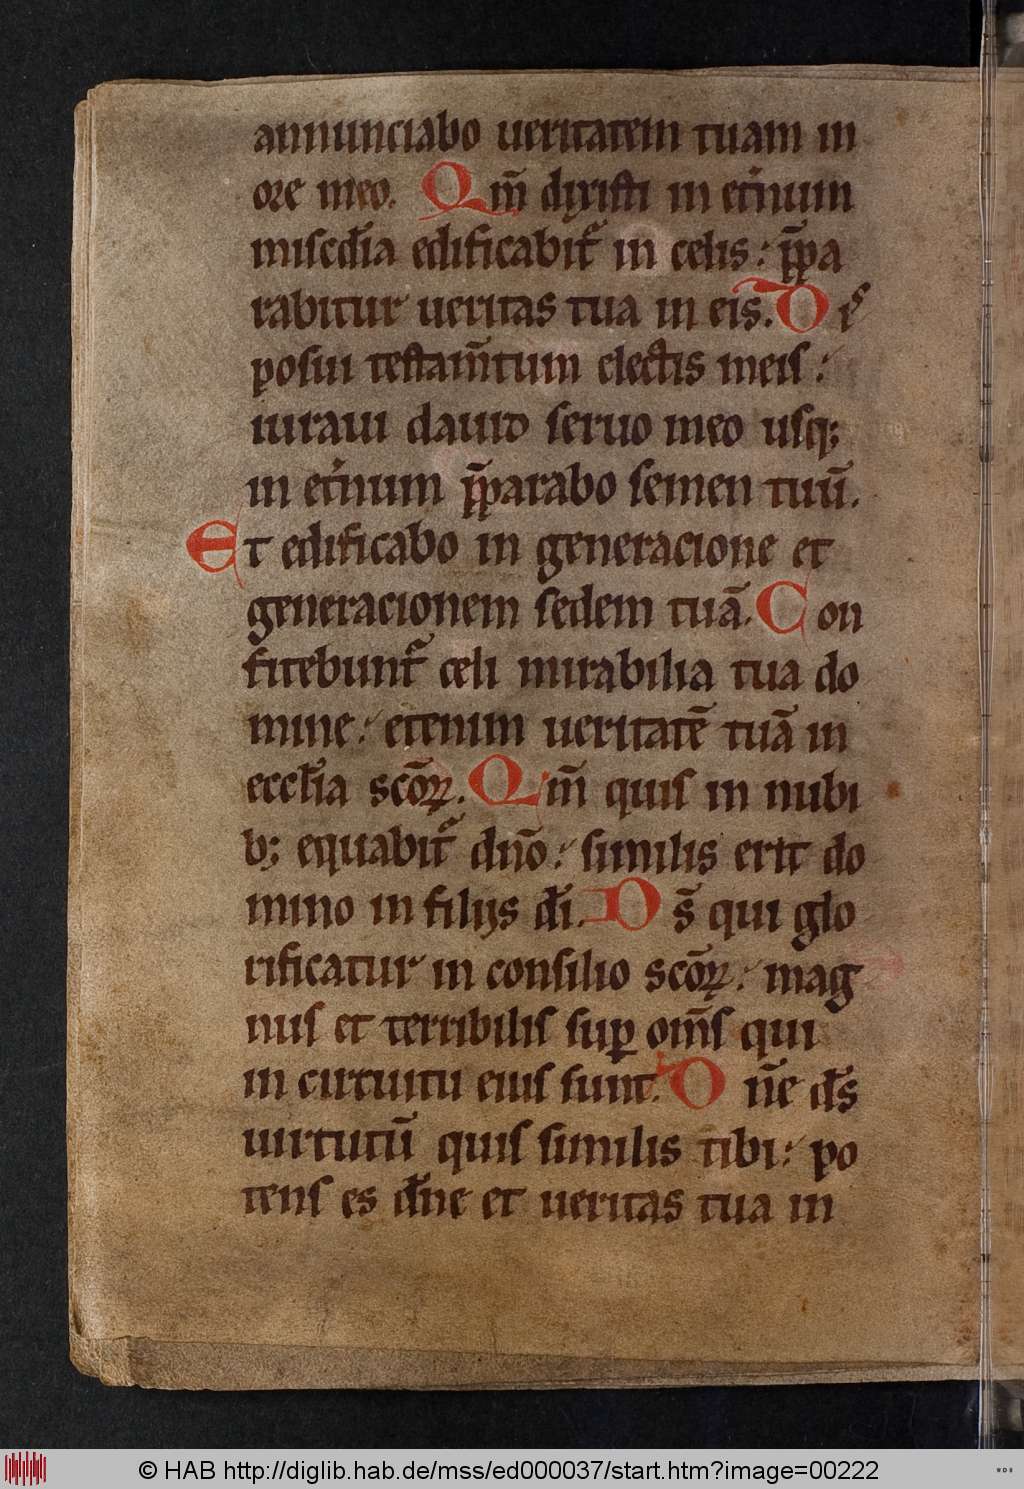 annunciabo ueritatem tuam in
ore meo. Qm̄ dixisti in et̓num
misc̄dia edificabit᷑ in celis: p̄pa
rabitur ueritas tua in eis. Dis
posui testam̄tum electis meis:
iuraui dauid seruo meo usq;
in et̓num p̄parabo semen tuū.
Et edificabo in generacione et
generacionem sedem tuā. Con
fitebunt᷑ celi mirabilia tua do
mine: etenim ueritatē tuā in
eccl̄ia scōꝝ. Qm̄ quis in nubi
b; equabit᷑ dn̄o: similis erit do
mino in filijs dī. Ds̄ qui glo
rificatur in consilio scōꝝ: mag
nus et terribilis suꝑ om̄s qui
in circuitu eius sunt. Dn̄e ds̄
uirtutū quis similis tibi: po
tens es dn̄e et ueritas tua in
© HAB http://diglib.hab.de/mss/ed000037/start.htm?image=00222